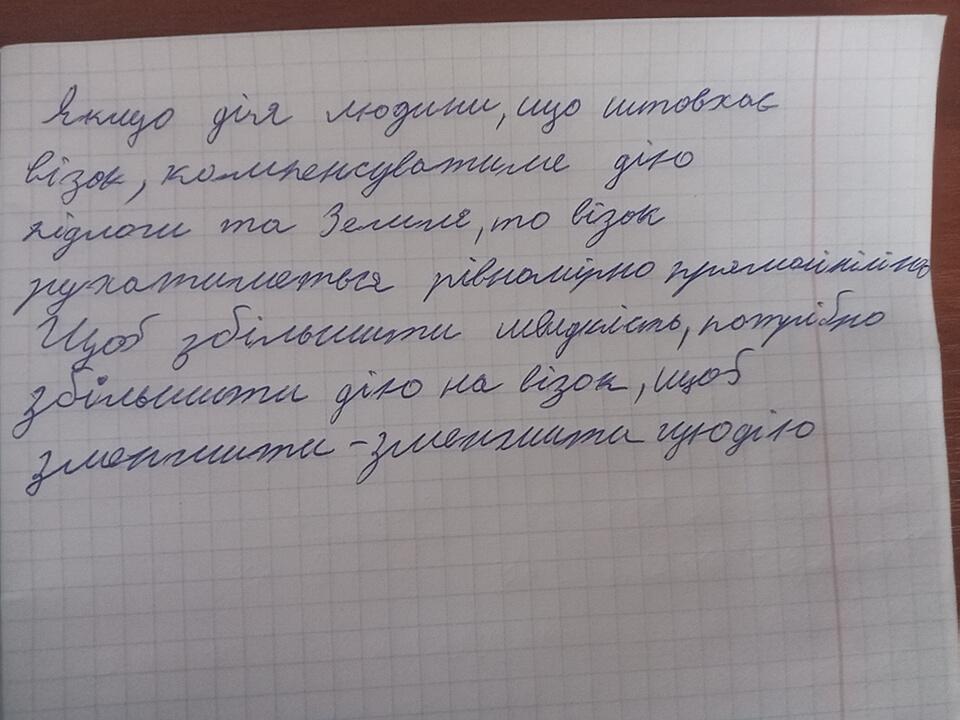 Якщо дія людини, що штовхає
візок, компенсуватиме дію
підлоги та Землі, то візок
рухатиметься рівномірно прямолінійно
Щоб збільшити швидкість, потрібно
збільшити дію на візок, щоб
зменшити - зменшити цю дію